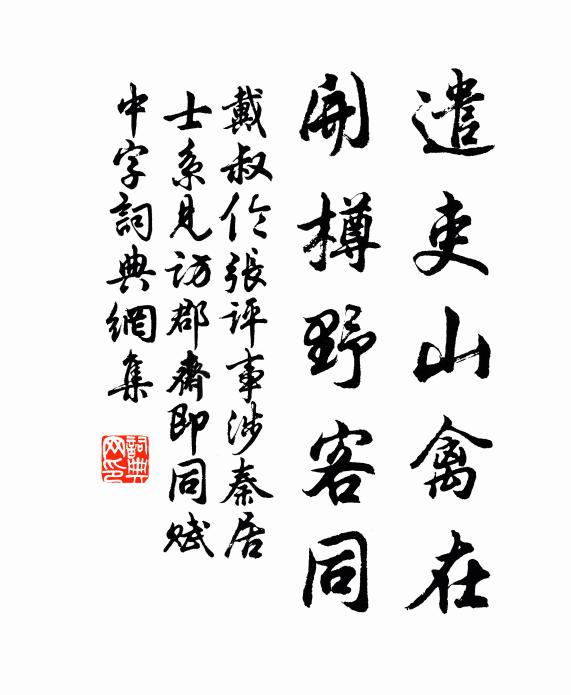 遣吏山禽在
開樽野客同
戴叔伦張評事涉秦居
士系見訪郡齋即同賦
中字詞典網集
詞典网印